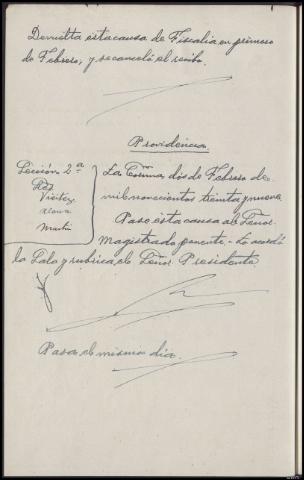 Devuelta esta causa de Fiscalia en primero
de Febrero, y se canceló el recibo.
Providencia
Sección 2ª
Vieitez
Martí
La Coruña dos de Febrero de
mil novecientos treinta y nueve
Pase esta causa al Señor
Magistrado ponente.- Lo acordó
la Sala y rubrica el Señor Presidente
Pasa el mismo dia.